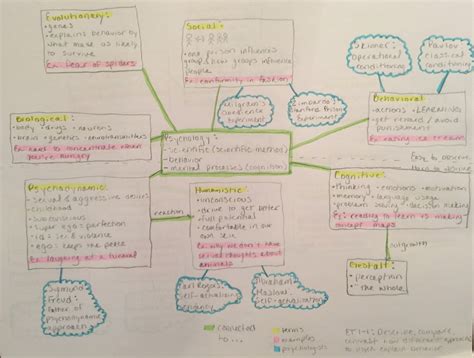 Evolutionary:
• genes
• explains behavior by
what made us likely
to survive
Ex: fear of spiders
Social:
• one person influences
group & how groups influence
people
Ex: conformity in fashion
Milgram's
Obedience
Experiment
Zimbardo:
Stanford Prison
Experiment
Skinner:
Operational
Conditioning
Pavlov:
Classical
conditioning
Behavioral
• actions • LEARNING
• get reward / avoid
punishment
Ex: eating ice cream
Biological:
• body • drugs • neurons
• brain • genetics • neurotransmitters
Ex: hard to concentrate when
you're hungry
Psychology:
• scientific (scientific method)
• behavior
• mental processes (cognition)
Easy to observe
Hard to observe
Psychodynamic
• sexual & aggressive desires
• childhood
• subconscious
• super ego = perfection
• id = sex & violence
• ego = keeps the peace
Ex: laughing at a funeral
reaction
Humanistic:
• unconscious
• drive to get better
• full potential
• comfortable in our
own skin
Ex: why we don't have
animals
Cognitive:
• thinking • emotions • motivation
• memory • language usage
• problem solving • decision making
Ex: creating to learn vs making
concept maps
outgrowth
Gestalt:
• perception
• "the whole"
Sigmund
Freud:
Father of
psychodynamic
approach
Carl Rogers:
Self-actualizing
tendency
Abraham
Maslow:
Self-actualization
connected
to...
terms
examples
psychologists